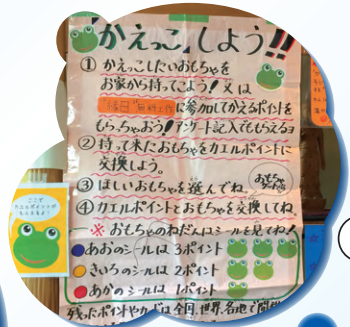 「かえっこ」しよう!!
① かえっこしたいおもちゃを
お家から持ってこよう! 又は
"縁日"無料
に参加してかえるポイントを
もらっちゃおう! アンケート記入でももらえるヨ
② 持って来たおもちゃをカエルポイントに
交換しよう。
③ ほしいおもちゃを選んでね。
おもちゃ
④ カエルポイントとおもちゃを交換してね
※ おもちゃのねだんはシールを見てね!
あおのシールは 3ポイント
きいろのシールは 2ポイント
あかのシールは 1ポイント
残ったポイントやカードは全国、世界、各地で開
ここで
カエルポイントが
もらえるよ!